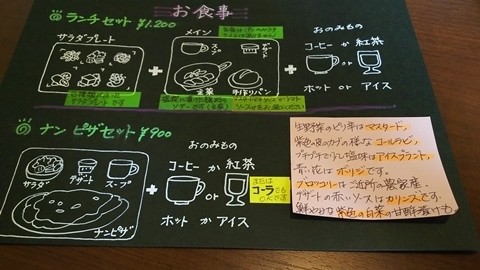 お食事
ランチセット ¥1.200
サラダプレート
メイン
スープ
デザート
主菜
手作りパン
おのみもの
コーヒー か 紅茶
or
ホット or アイス
ナン ピザセット ¥900
サラダ
デザート
スープ
ナンピザ
おのみもの
コーヒー か 紅茶
or
ホット か アイス
または
コーラでも
OKです
生野菜のピリ辛はマスタード,
紫色のカブの様な コールラビ,
プチプチで少し塩味はアイスプラント,
青い花は ボリジです。
ブロッコリーは ご近所の農家産。
デザートの赤いソースは カリンズです。
鮮やかな 紫色の白菜の甘酢漬けも